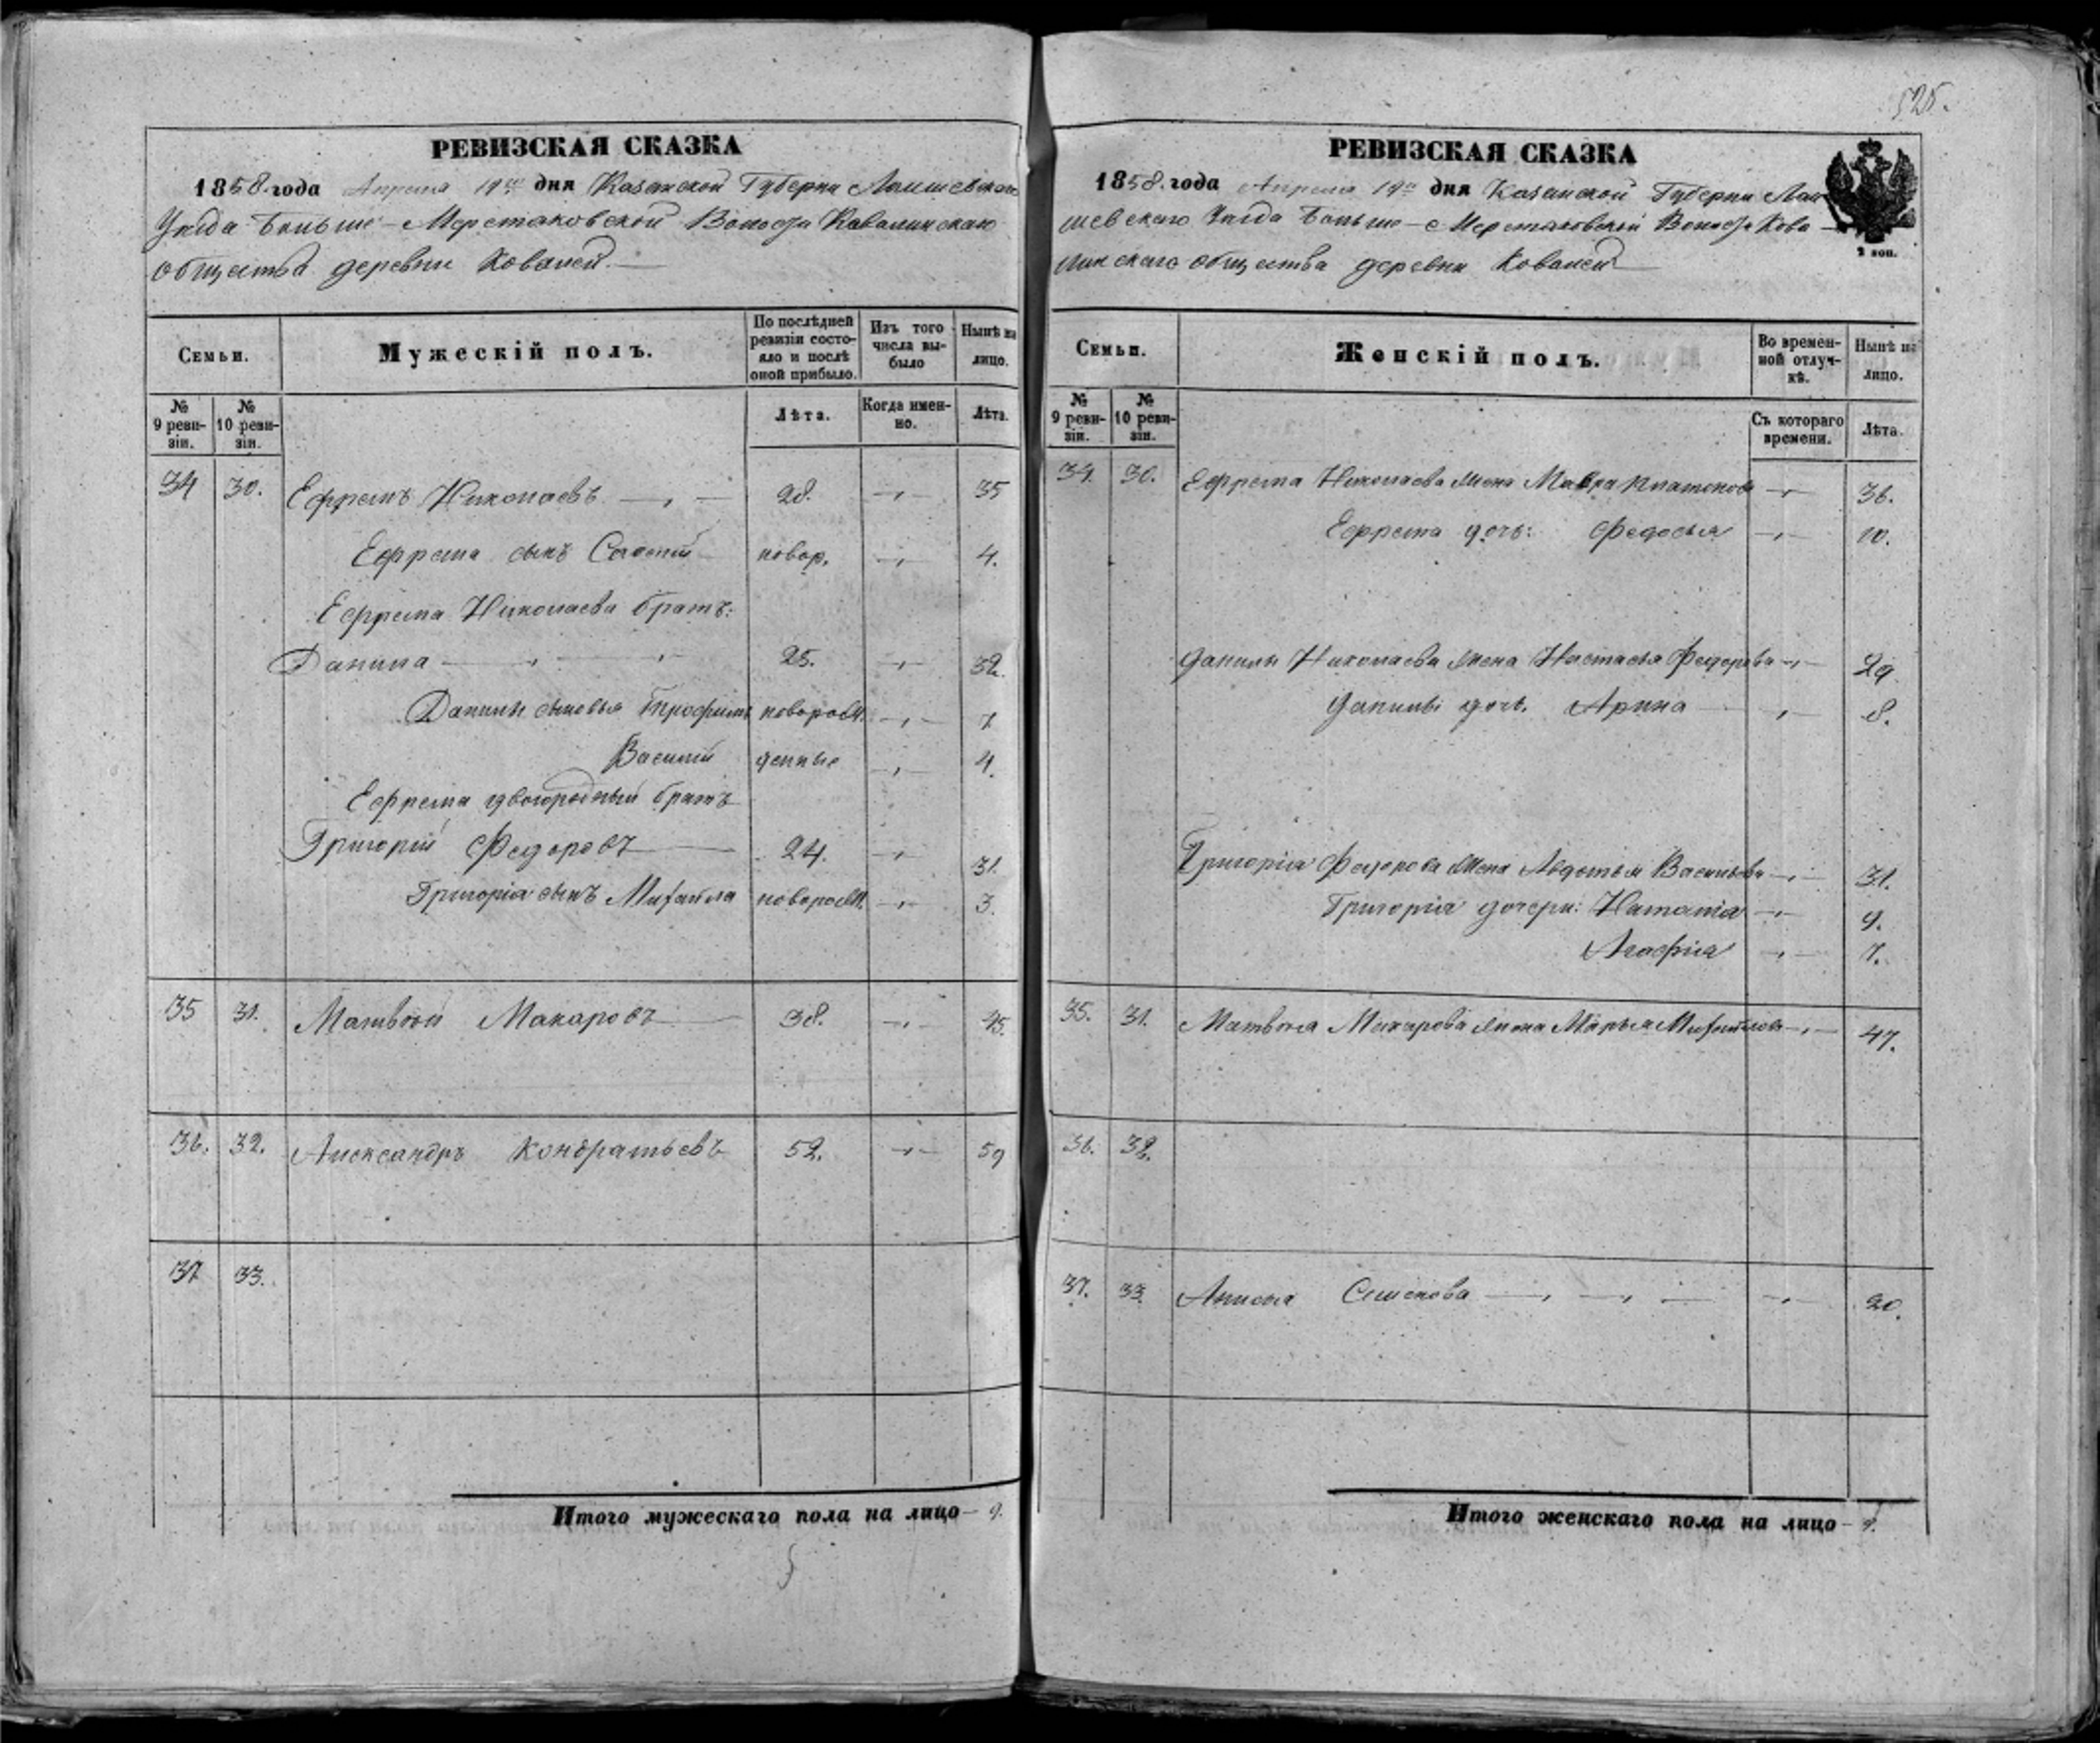 525.
РЕВИЗСКАЯ СКАЗКА
1858 года Апреля 19го дня Казанской Губерни Лаишевскаго
Уѣзда Больше-Меретяковской Волости Ковалинскаго
общества деревни Ковалей.
Семьи.
Мужескій полъ.
По послѣдней ревизіи состояло и послѣ оной прибыло.
Изъ того числа выбыло
Нынѣ на лицо.
№ 9 ревизіи.
№ 10 ревизіи.
Лѣта.
Когда именно.
Лѣта.
34 30. Ефремъ Николаевъ 28. 35
Ефрема сынъ новор. 4.
Ефрема Николаева братъ:
Данила 25. 32.
Данилы сыновья Трофимъ новорож 7
Василій денные 4.
Ефрема двоюродный братъ
Григорій Федоровъ 24. 31.
Григорія сынъ Михайла новорож. 3.
35 31. Матвѣй Макаровъ 38. 45.
36. 32. Александръ Кондратьевъ 52. 59
37 33.
Итого мужескаго пола на лицо 9.
РЕВИЗСКАЯ СКАЗКА
1858 года Апреля 19го дня Казанской Губерни Лаи
шевскаго Уѣзда Больше-Меретяковской Волости Кова
линскаго общества деревни Ковалей
2 коп.
Семьи.
Женскій полъ.
Во временной отлучкѣ.
Нынѣ на лицо.
№ 9 ревизіи.
№ 10 ревизіи.
Съ котораго времени.
Лѣта.
34. 30. Ефрема Николаева жена Мавра Платонова 36.
Ефрема дочь: Федосья 10.
Данилы Николаева жена Настасья Федорова 29
Данилы дочь. Арина 8.
Григорія Федорова жена Авдотья Васильева 31.
Григорія дочери: Наталія 9.
Агафія 7.
35. 31. Матвѣя Макарова жена Марья Михайлова 47.
36. 32.
37. 33. Анисья Семенова 20.
Итого женскаго пола на лицо